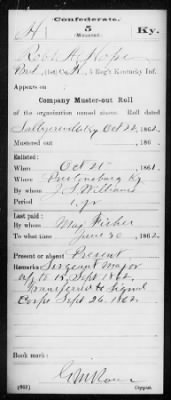 Confederate.
H 5 Ky.
(Mounted)
Robt A. Hope
(1st) Co. K, 5 Reg't Kentucky Inf.
Appears on
Company Muster-out Roll
of the organization named above. Roll dated
Oct 22, 1862.
Mustered out 186
Enlisted:
When Oct 21 1861.
Where Prestonsburg Ky
By whom J. S. Williams
Period 1 yr
Last paid:
By whom Maj.
To what time June 30, 1862.
Present or absent Present
Remarks: Sergeant Major
up to 15 Sept 1862
Transferred to Signal
Corps Sept 26, 1862.
Book mark:
(663) Copyist.